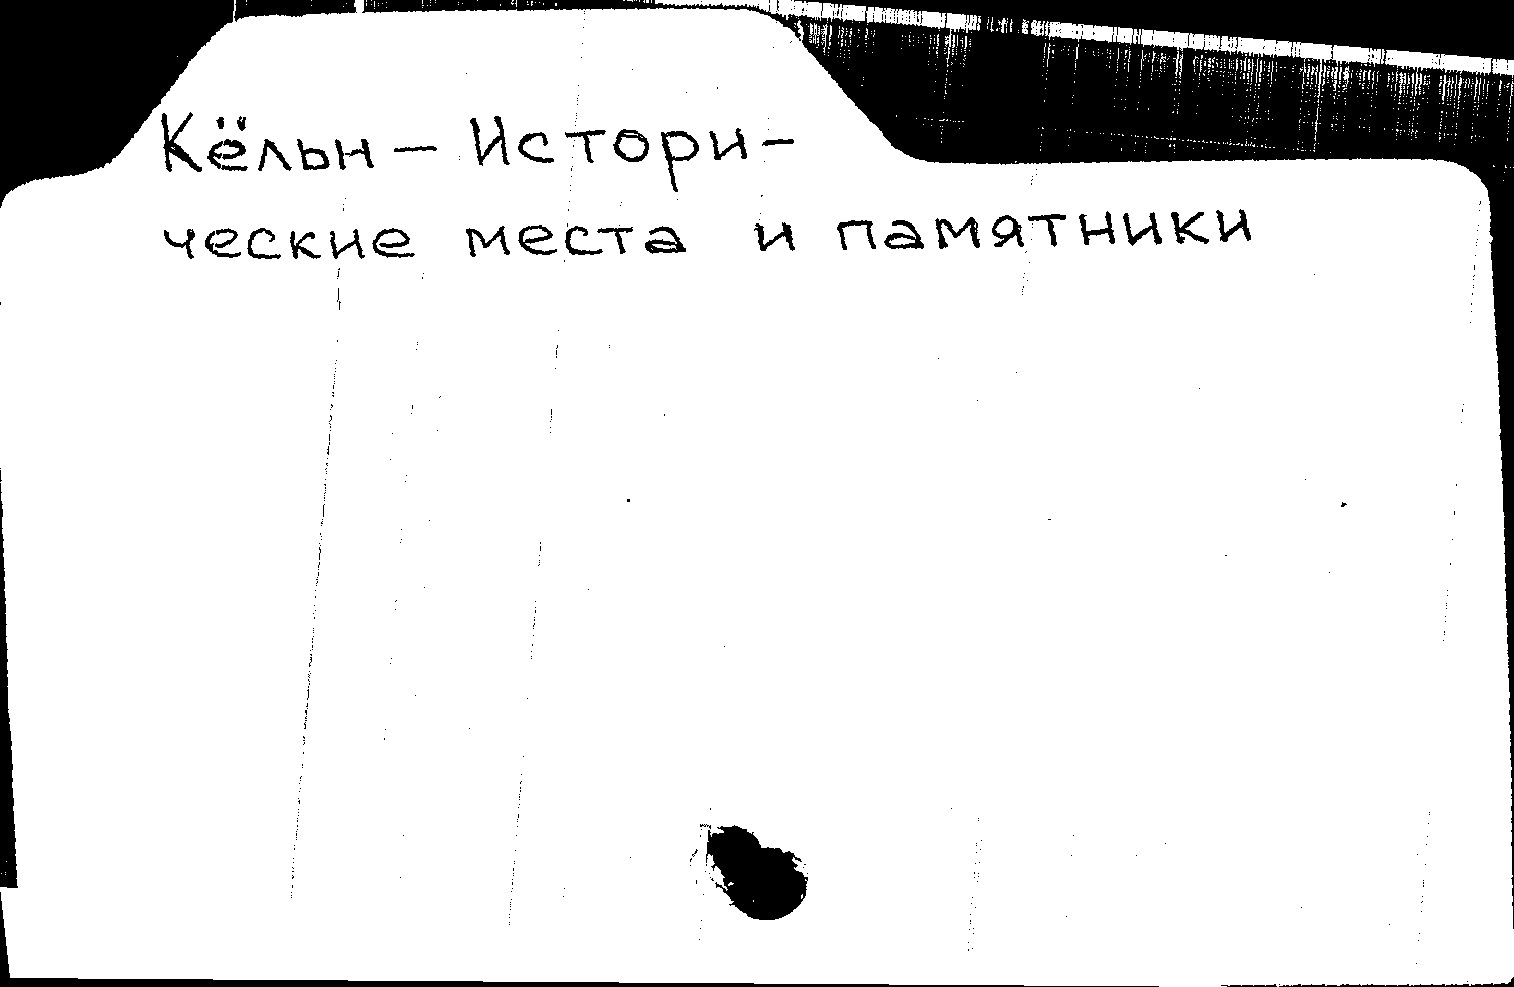 Кёльн — Истори-
ческие места и памятники